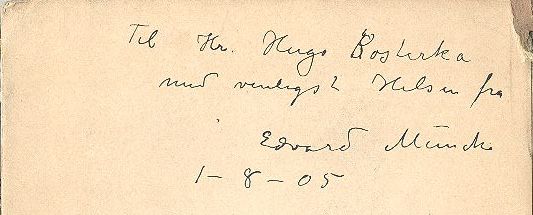 Til Hr. Hugo Kosterka
med venligst Hilsen fra
Edvard Munch
1 - 8 - 05